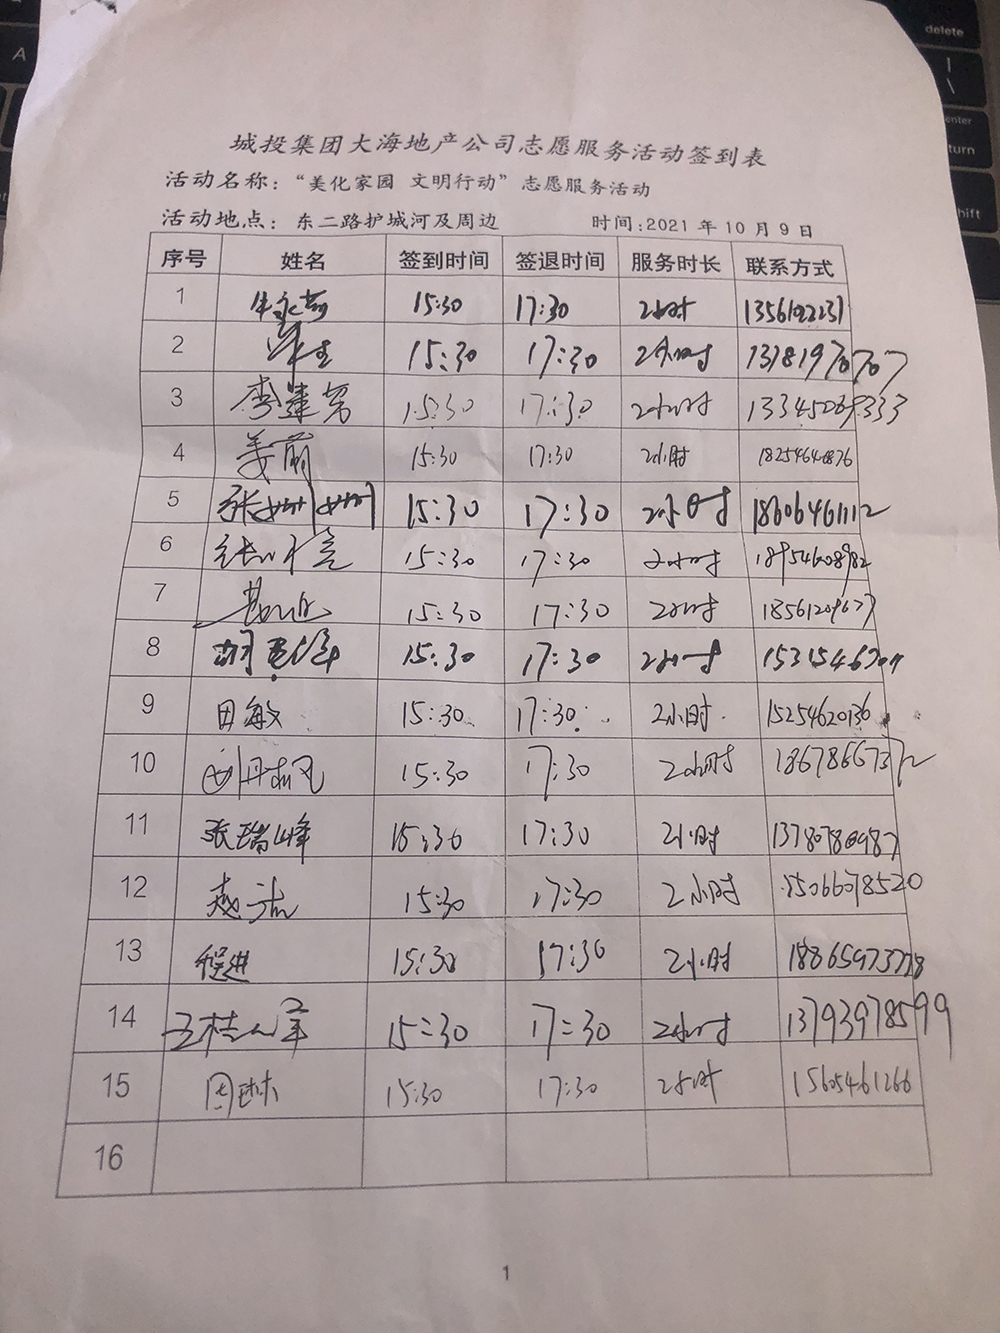 delete
A
enter
turn
shift
城投集团大海地产公司志愿服务活动签到表
活动名称：“美化家园 文明行动”志愿服务活动
活动地点： 东二路护城河及周边 时间:2021 年 10 月 9 日
序号 姓名 签到时间 签退时间 服务时长 联系方式
1 15:30 17:30 2小时
2 15:30 17:30 2小时 13181970707
3 李建 15:30 17:30 2小时
4 姜前 15:30 17:30 2小时
5 张姗姗 15:30 17:30 2小时 18606461112
6 15:30 17:30 2小时 18954608982
7 15:30 17:30 2小时
8 胡 15:30 17:30 2小时
9 田敏 15:30 17:30 2小时 15254620136
10 刘丹枫 15:30 17:30 2小时
11 张瑞峰 15:30 17:30 2小时
12 赵 15:30 17:30 2小时 15066078520
13 程进 15:30 17:30 2小时
14 王桂军 15:30 17:30 2小时 13793978599
15 周琳 15:30 17:30 2小时 15605461266
16
1